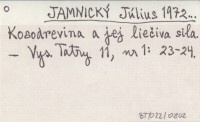 JAMNICKÝ Július 1972...
Kosodrevina a jej liečivá sila.
- Vys. Tatry 11, nr 1: 23-24.